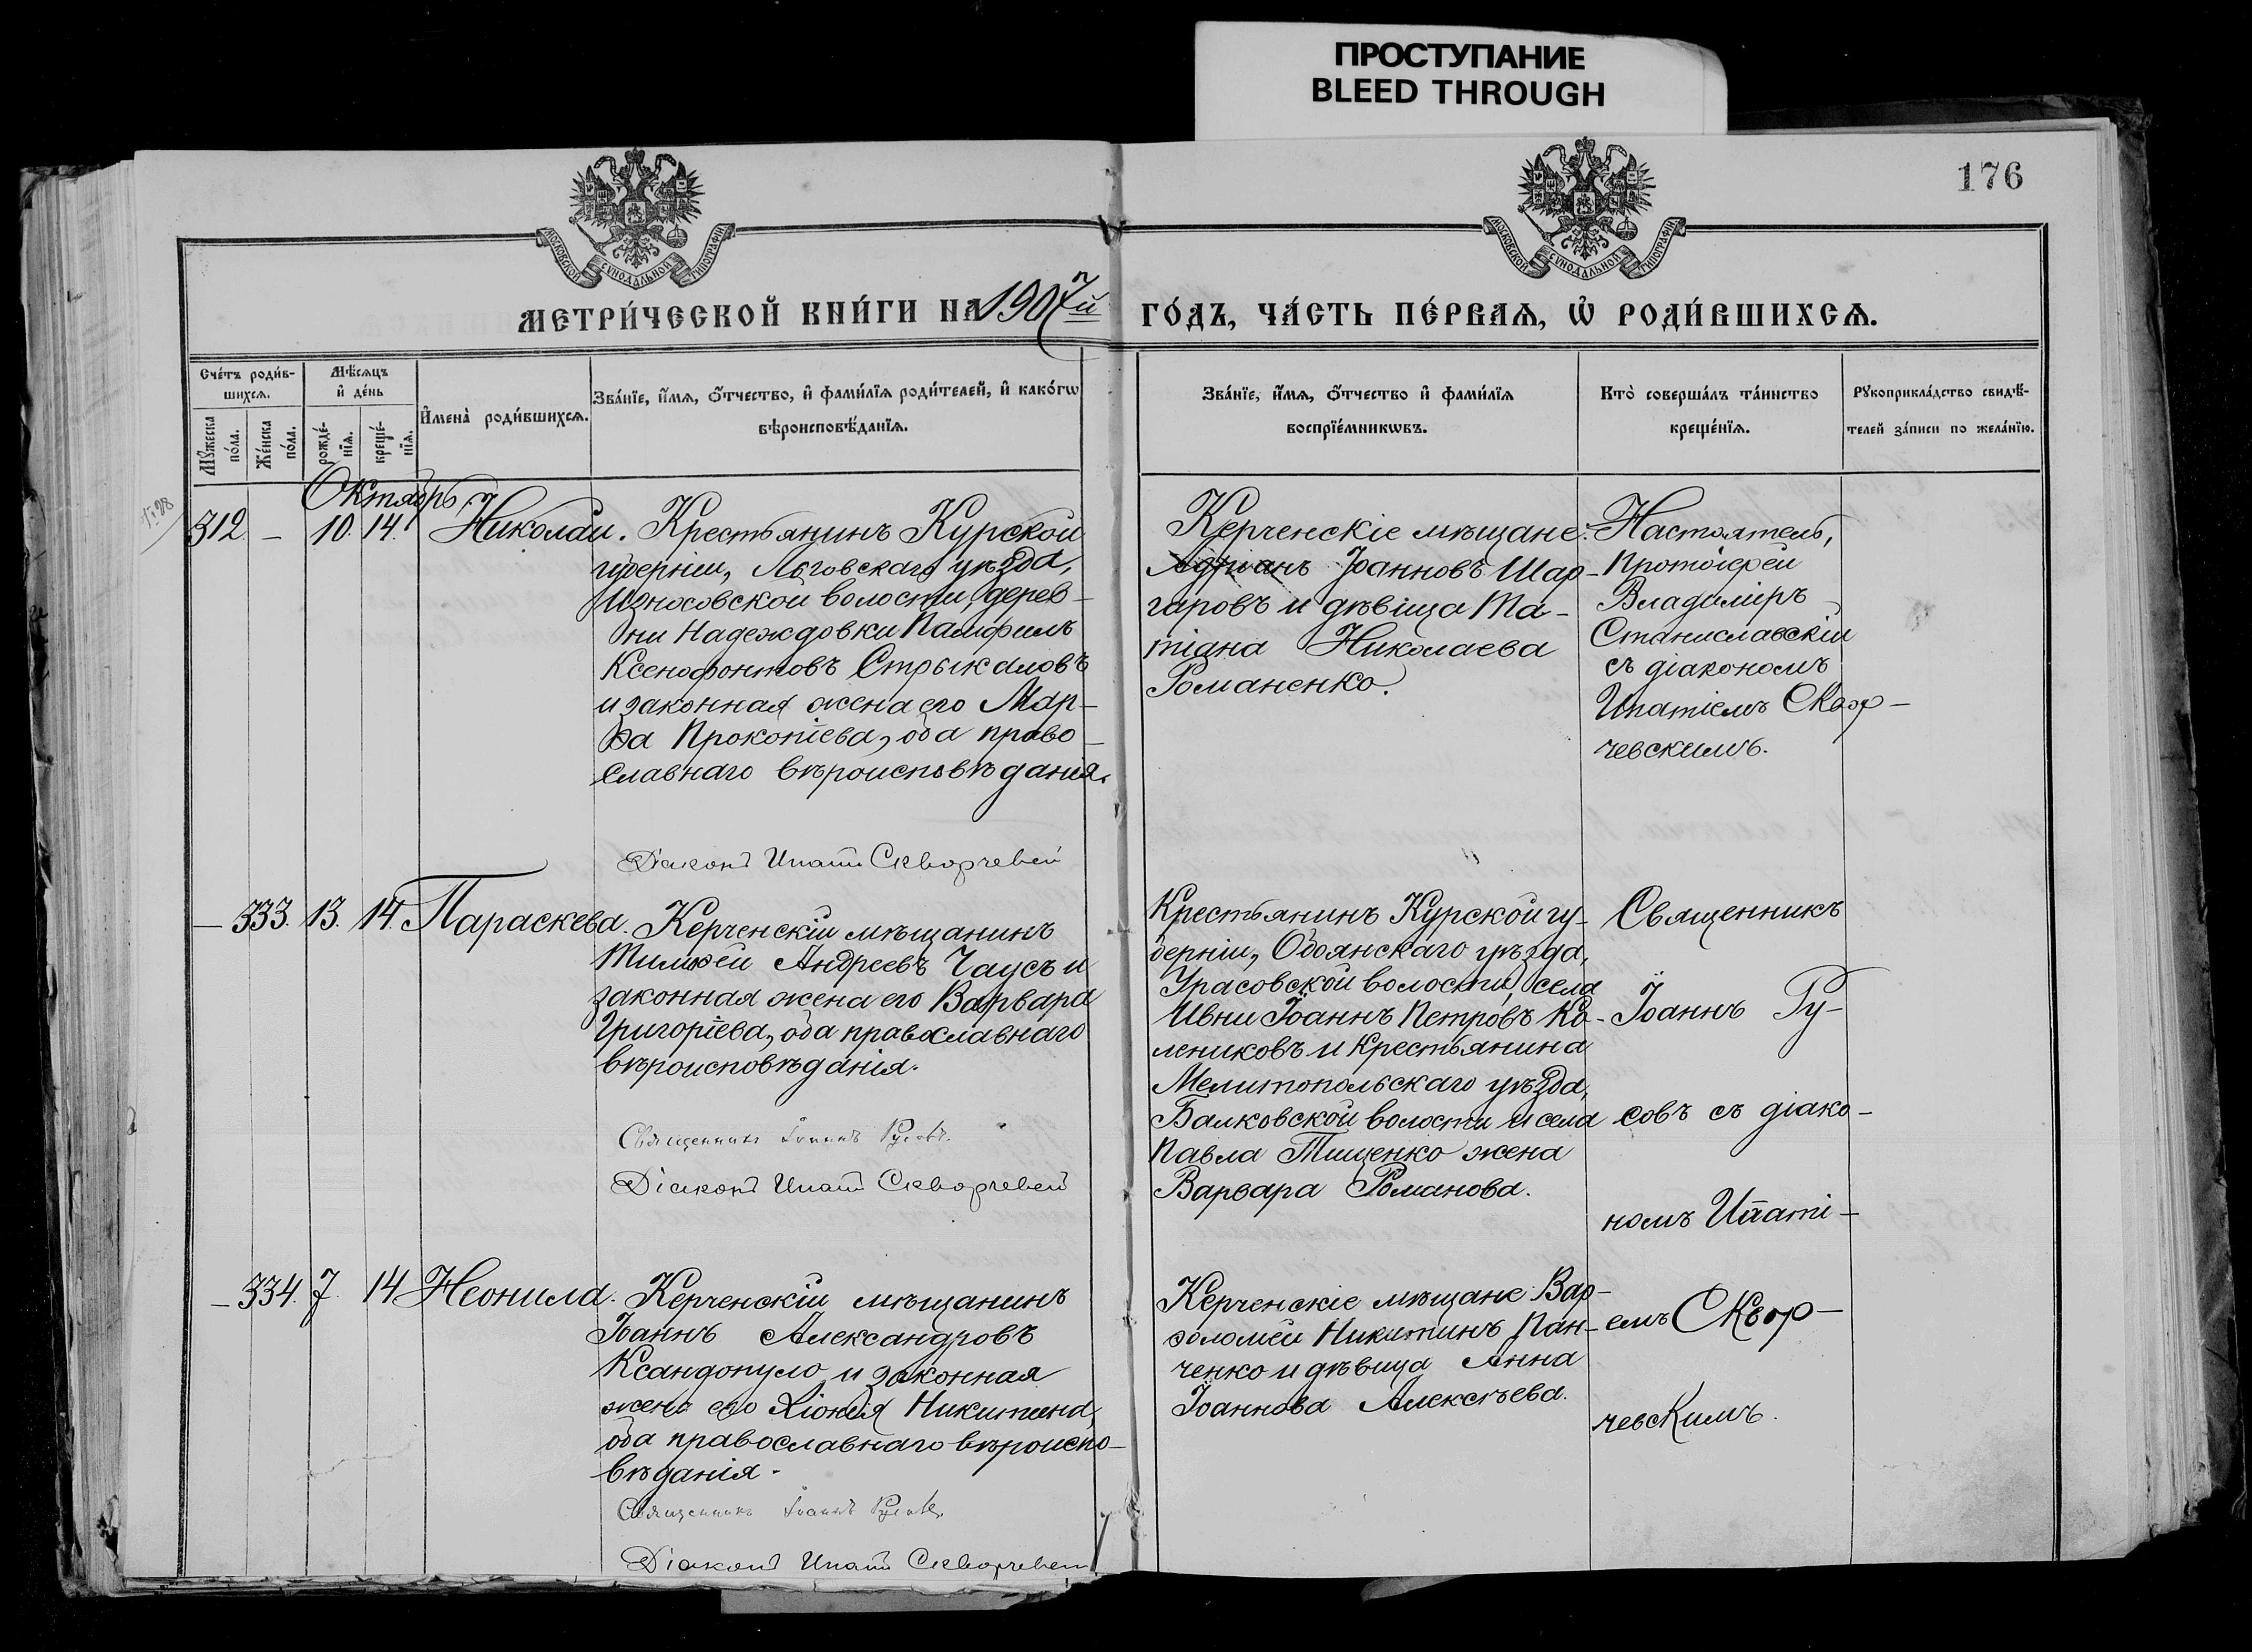 ПРОСТУПАНИЕ
BLEED THROUGH
176
МОСКОВСКОЙ СѴНОДАЛЬНОЙ ТИПОГРАФІИ
МОСКОВСКОЙ СѴНОДАЛЬНОЙ ТИПОГРАФІИ
МЕТРИ́ЧЕСКОЙ КНИ́ГИ НА 1907й ГО́ДЪ, ЧА́СТЬ ПЕ́РВАѦ, Ѡ҆ РОДИ́ВШИХСѦ.
Сче́тъ роди́в-
шихсѧ.
Мꙋ́жеска
по́ла.
Же́нска
по́ла.
Мѣ́сѧцъ
и҆ де́нь
рожде́-
нїѧ.
креще́-
нїѧ.
И҆мена̀ роди́вшихсѧ.
Зва́нїе, и҆́мѧ, ѻ҆́тчество, и҆ фами́лїѧ роди́телей, и҆ како́гѡ
вѣроисповѣ́данїѧ.
Зва́нїе, и҆́мѧ, ѻ҆́тчество и҆ фами́лїѧ
воспрїе́мникѡвъ.
Кто̀ соверша́лъ та́инство
креще́нїѧ.
Рꙋкоприкла́дство свидѣ́-
телей за́писи по жела́нїю.
Октябрь
312 — 10. 14. Николай.
Крестьянинъ Курской
губерніи, Льговскаго уѣзда,
волости, дерев-
ни Надеждовки Памфилъ
Ксенофонтовъ Стрыкаловъ
и законная жена его Мар-
ѳа Прокопіева, оба право-
славнаго вѣроисповѣданія.
Діаконъ Ипатій Скворчевскій
Керченскіе мѣщане:
Адріанъ Іоанновъ Шар-
гаровъ и дѣвица Та-
тіана Николаева
Романенко.
Настоятель,
Протоіерей
Владиміръ
Станиславскій
съ діакономъ
Ипатіемъ Сквор-
чевскимъ.
— 333. 13. 14. Параскева.
Керченскій мѣщанинъ
Тимоѳей Андреевъ Чаусъ и
законная жена его Варвара
Григоріева, оба православнаго
вѣроисповѣданія.
Священникъ Іоаннъ Русовъ.
Діаконъ Ипатій Скворчевскій
Крестьянинъ Курской гу-
берніи, Обоянскаго уѣзда,
волости, села
Ивни Іоаннъ Петровъ Ко-
лениковъ и Крестьянина
Мелитопольскаго уѣзда,
Балковской волости и села
Павла Тищенко жена
Варвара Романова.
Священникъ
Іоаннъ Ру-
совъ съ діако-
номъ Ипаті-
емъ Сквор-
чевскимъ.
— 334. 7. 14 Неонила.
Керченскій мѣщанинъ
Іоаннъ Александровъ
Ксандопуло и законная
жена его Хіонія Никитина,
оба православнаго вѣроиспо-
вѣданія.
Священникъ Іоаннъ Русовъ.
Діаконъ Ипатій Скворчевскій
Керченскіе мѣщане Вар-
ѳоломей Никитинъ Пан-
ченко и дѣвица Анна
Іоаннова Алексѣева.